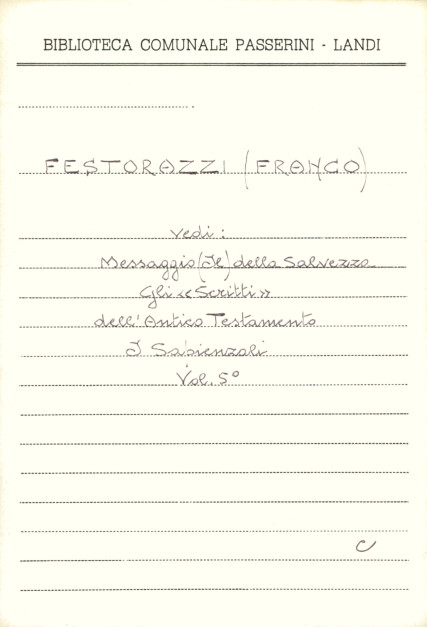 BIBLIOTECA COMUNALE PASSERINI - LANDI
FESTORAZZI (FRANCO)
vedi:
Messaggio (Il) della Salvezza
Gli «Scritti»
dell'Antico Testamento
I Sapienzali
Vol. 5°
C